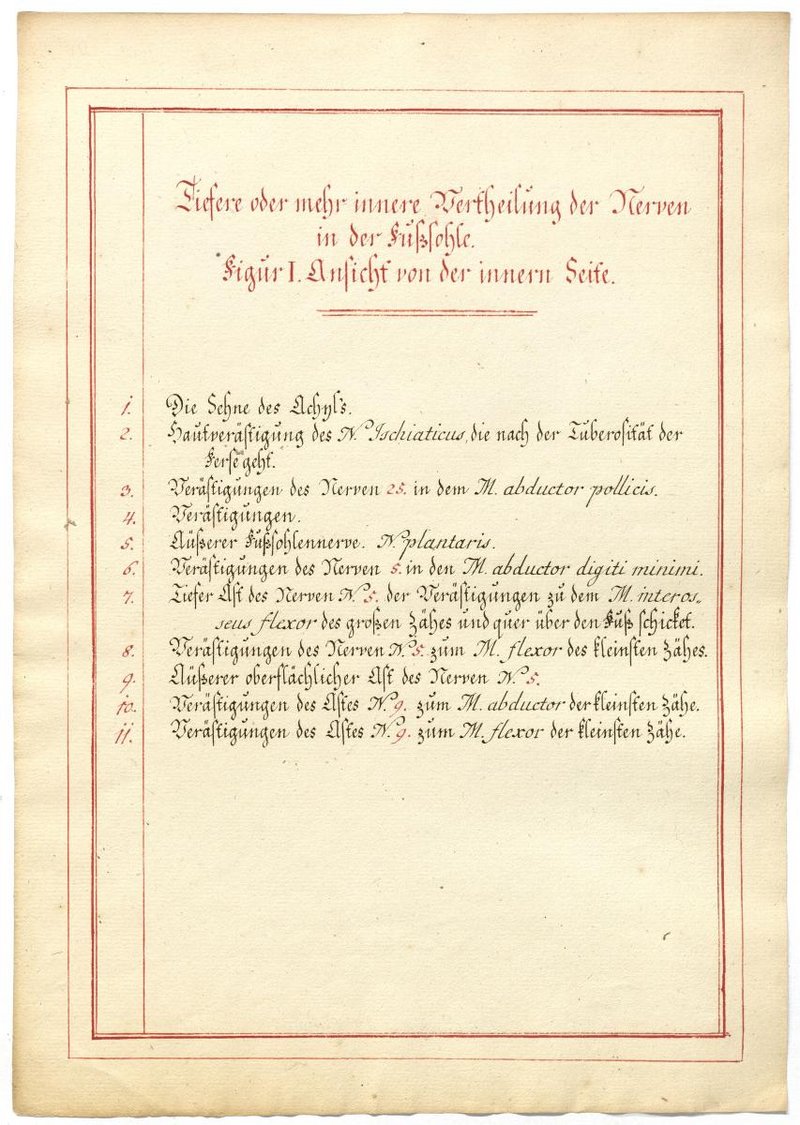 Tiefere oder mehr innere Vertheilung der Nerven
in der Fußsohle.
Figur I. Ansicht von der innern Seite.
1. Die Sehne des Achyl's.
2. Hautverästigung des N. Ischiaticus, die nach der Tuberosität der
Ferse geht.
3. Verästigungen des Nerven 25. in dem M. abductor pollicis.
4. Verästigungen.
5. Äüßerer Fußsohlennerve. N. plantaris.
6. Verästigungen des Nerven 5. in den M. abductor digiti minimi.
7. Tiefer Ast des Nerven No. 5. der Verästigungen zu dem M. interos„
seus flexor des großen Zähes und quer über den Fuß schicket.
8. Verästigungen des Nerven No. 5. zum M. flexor des kleinsten Zähes.
9. Äüßerer oberflächlicher Ast des Nerven No. 5.
10. Verästigungen des Astes No. 9. zum M. abductor der kleinsten Zähe.
11. Verästigungen des Astes No. 9. zum M. flexor der kleinsten Zähe.